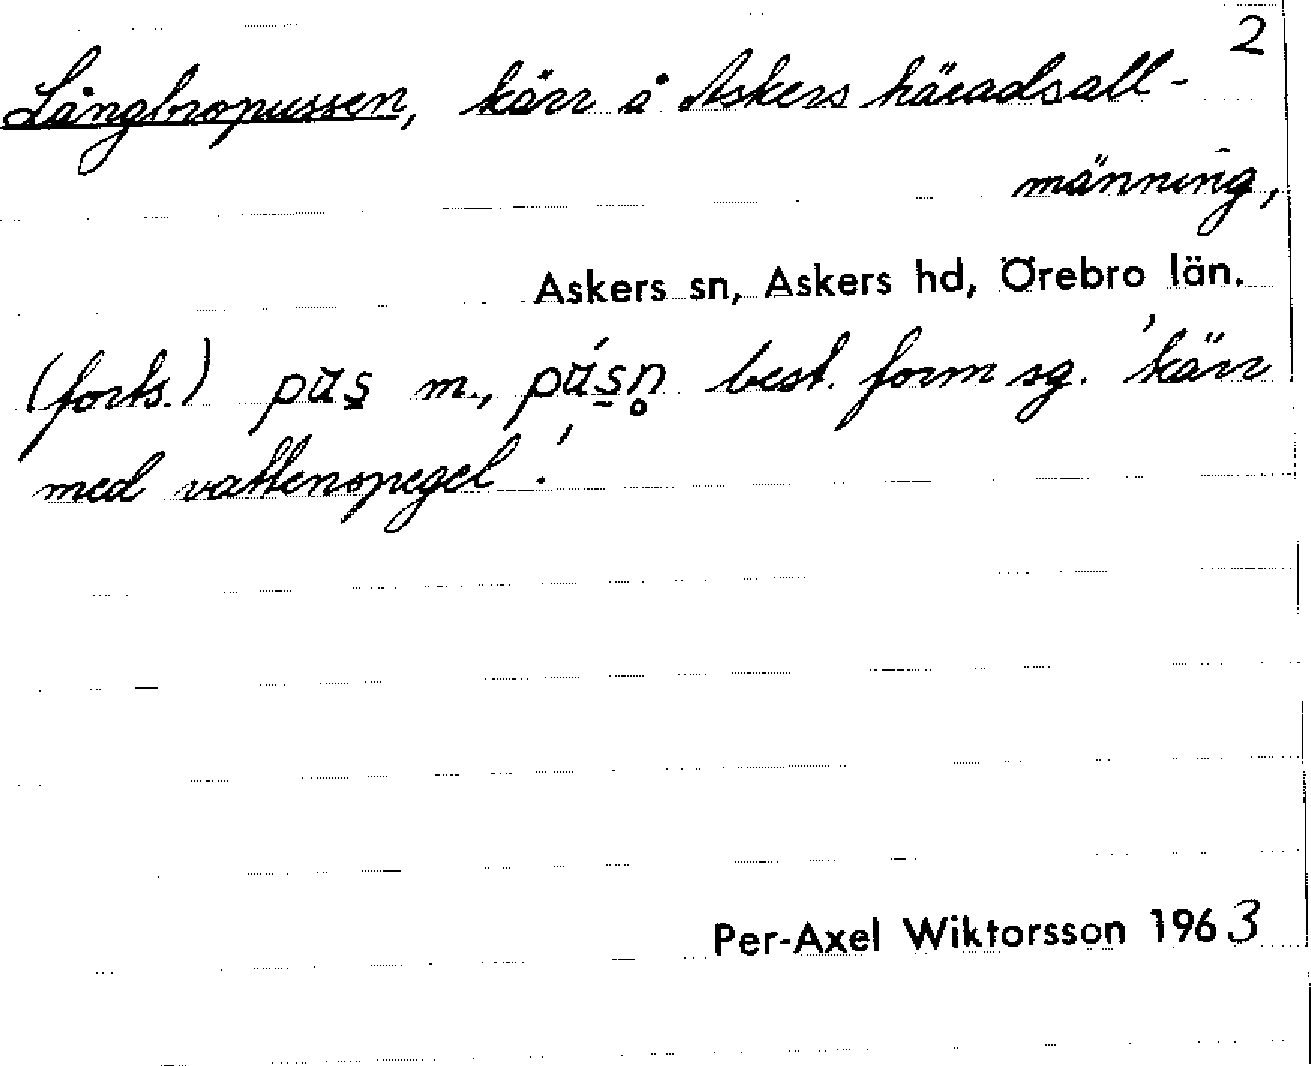 2
Långbropussen, kärr å Askers häradsall-
männing,
Askers sn, Askers hd, Örebro län.
(forts.) pus̱ m., pús̱n̥ best. form sg. 'kärr
med vattenspegel'.
Per-Axel Wiktorsson 1963